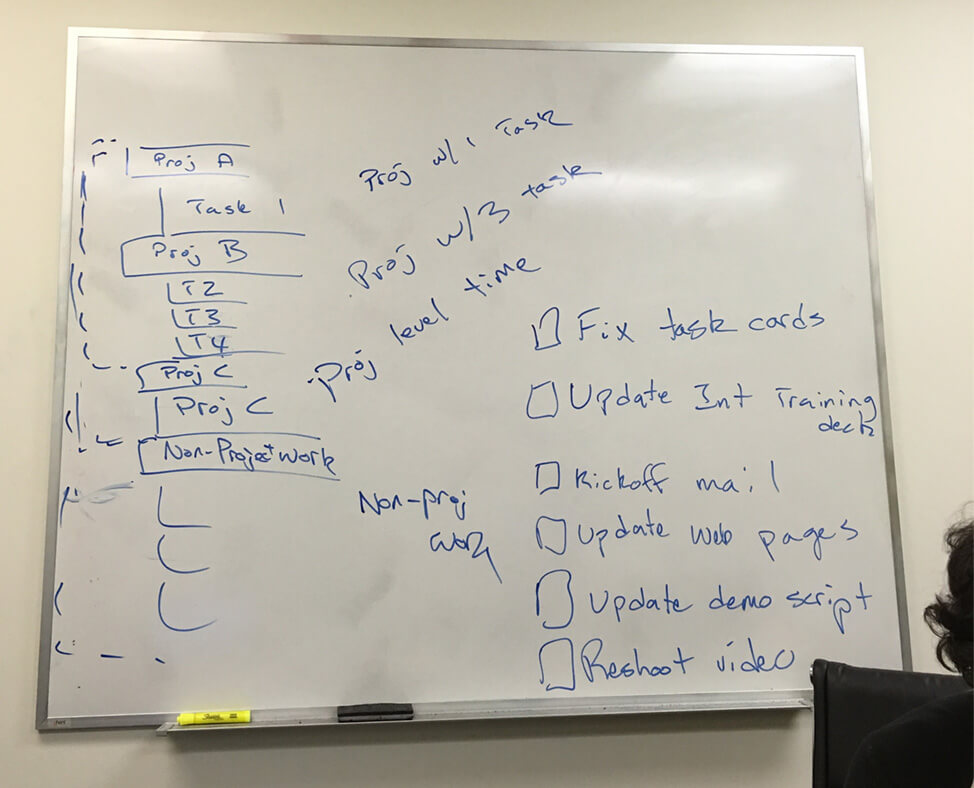 Proj A
Task 1
Proj B
T2
T3
T4
Proj C
Proj C
Non-Project work
Proj w/ 1 Task
Proj w/ 3 task
Proj level time
Non-proj
work
Fix task cards
Update Int Training
deck
Kickoff mail
Update web pages
Update demo script
Reshoot video
Sharpie